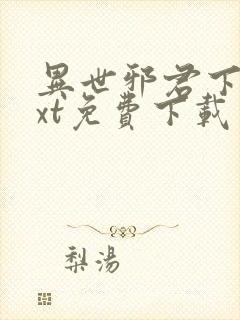 異世邪君下
xt免費下載
梨湯